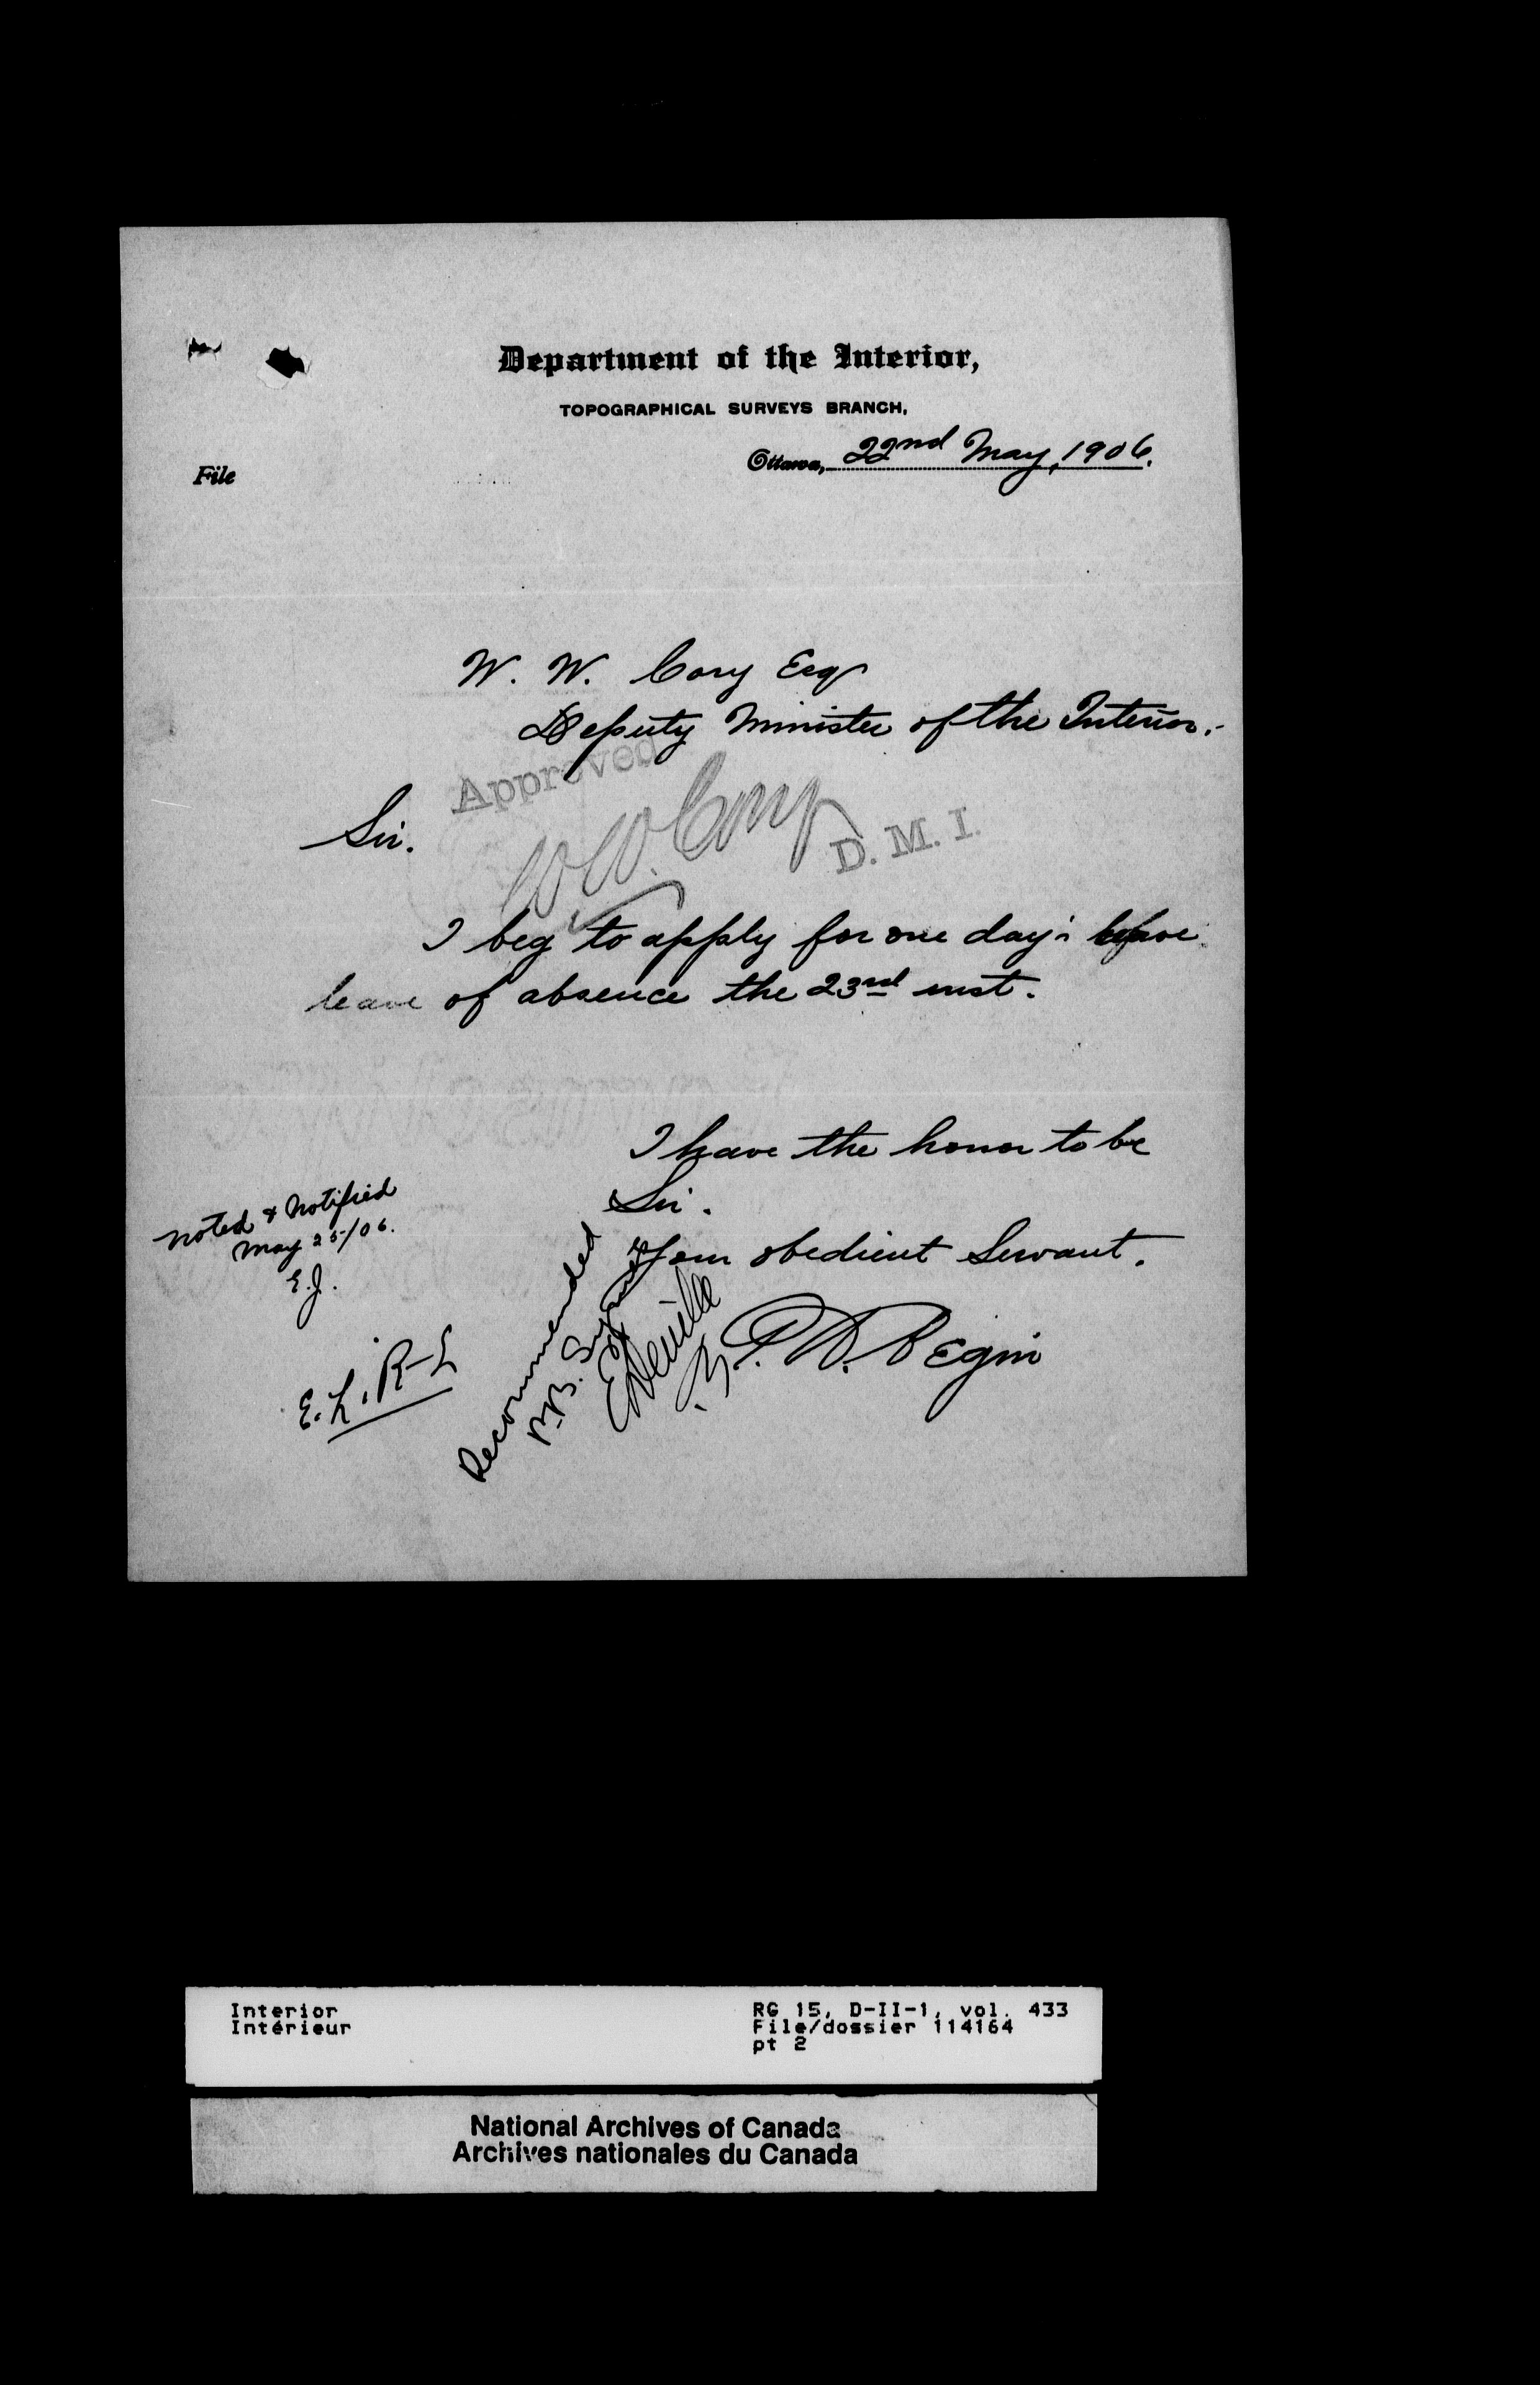 Department of the Interior,
TOPOGRAPHICAL SURVEYS BRANCH,
Ottawa, 22nd May, 1906.
File
W. W. Cory Esq
Deputy Minister of the Interior.
Approved
W W. Cory
D. M. I.
Sir.
I beg to apply for one day's
leave of absence the 23rd inst.
I have the honor to be
Sir.
Your obedient Servant.
P. A. Begin
noted & notified
May 25/06.
E.J.
E. L. R-L
Recommended
P.B. Symes
E Deville
Interior
Intérieur
RG 15, D-II-1, vol. 433
File/dossier 114164
pt 2
National Archives of Canada
Archives nationales du Canada